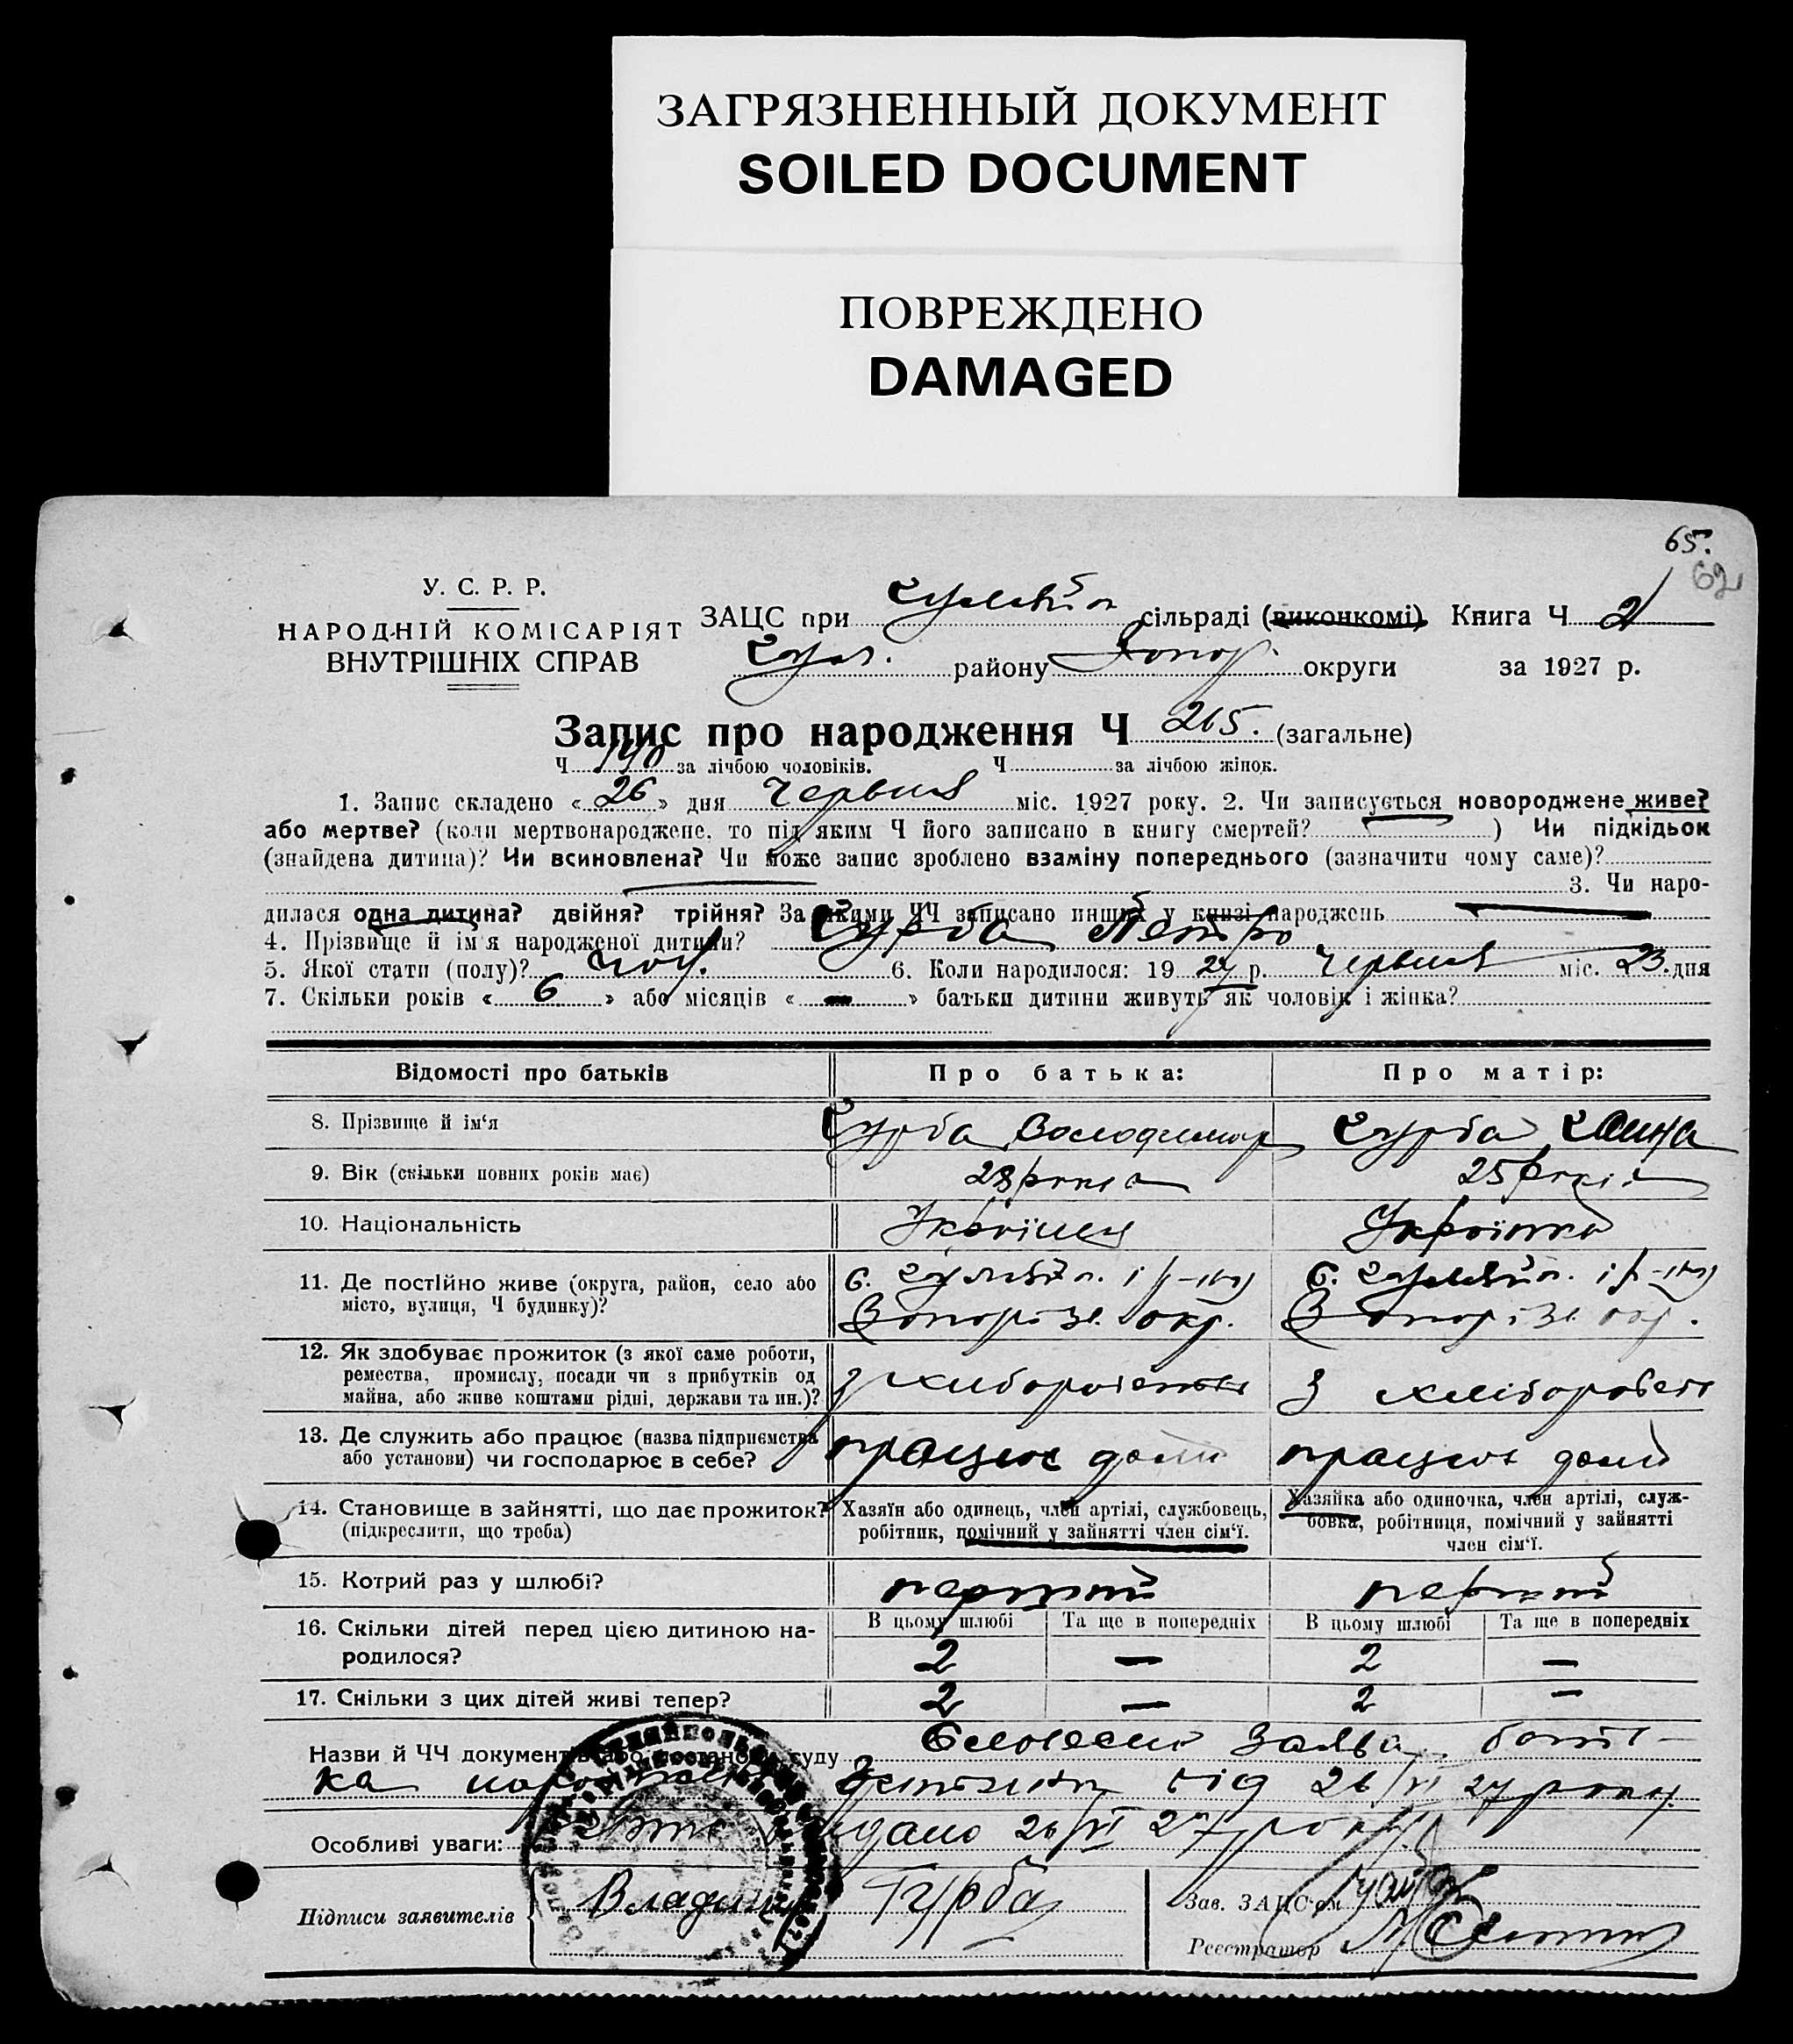 ЗАГРЯЗНЕННЫЙ ДОКУМЕНТ
SOILED DOCUMENT
ПОВРЕЖДЕНО
DAMAGED
65.
62
У. С. Р. Р.
НАРОДНІЙ КОМІСАРІЯТ
ВНУТРІШНІХ СПРАВ
ЗАЦС при сільраді (виконкомі) Книга Ч 2
району Запор. округи за 1927 р.
Запис про народження Ч 265. (загальне)
Ч 140 за лічбою чоловіків. Ч за лічбою жінок.
1. Запис складено « 26 » дня Червня міс. 1927 року. 2. Чи записується новороджене живе?
або мертве? (коли мертвонароджене, то під яким Ч його записано в книгу смертей? ) Чи підкідьок
(знайдена дитина)? Чи всиновлена? Чи може запис зроблено взаміну попереднього (зазначити чому саме)?
3. Чи наро-
дилася одна дитина? двійня? трійня? За якими ЧЧ записано инших у книзі народжень
4. Прізвище й ім'я народженої дитини? Гурба Петро
5. Якої стати (полу)? чол. 6. Коли народилося: 19 27 р. Червня міс. 23. дня
7. Скільки років « 6 » або місяців « — » батьки дитини живуть як чоловік і жінка?
Відомості про батьків Про батька: Про матір:
8. Прізвище й ім'я Гурба Володимир Гурба
9. Вік (скільки повних років має) 28 років 25 років
10. Національність Українець Українка
11. Де постійно живе (округа, район, село або
місто, вулиця, Ч будинку)?
с. і р-ну с. і р-ну
Запорізь. окр. Запорізь. окр.
12. Як здобуває прожиток (з якої саме роботи,
ремества, промислу, посади чи з прибутків од
майна, або живе коштами рідні, держави та ин.)?
з хліборобства з хліборобств
13. Де служить або працює (назва підприємства
або установи) чи господарює в себе?
працює дома працює дома
14. Становище в зайнятті, що дає прожиток?
(підкреслити, що треба)
Хазяїн або одинець, член артілі, службовець,
робітник, помічний у зайнятті член сім'ї.
Хазяйка або одиночка, член артілі, служ-
бовка, робітниця, помічний у зайнятті
член сім'ї.
15. Котрий раз у шлюбі? перший перший
16. Скільки дітей перед цією дитиною на-
родилося?
В цьому шлюбі Та ще в попередніх В цьому шлюбі Та ще в попередніх
2 — 2 —
17. Скільки з цих дітей живі тепер? 2 — 2 —
Назви й ЧЧ документів або постанов суду Словесна заява бать-
ка від 26/VI 27 року
Особливі уваги: видано 26/VI 27 року
Підписи заявителів Гурба
Зав. ЗАЦС'ом
Реєстратор